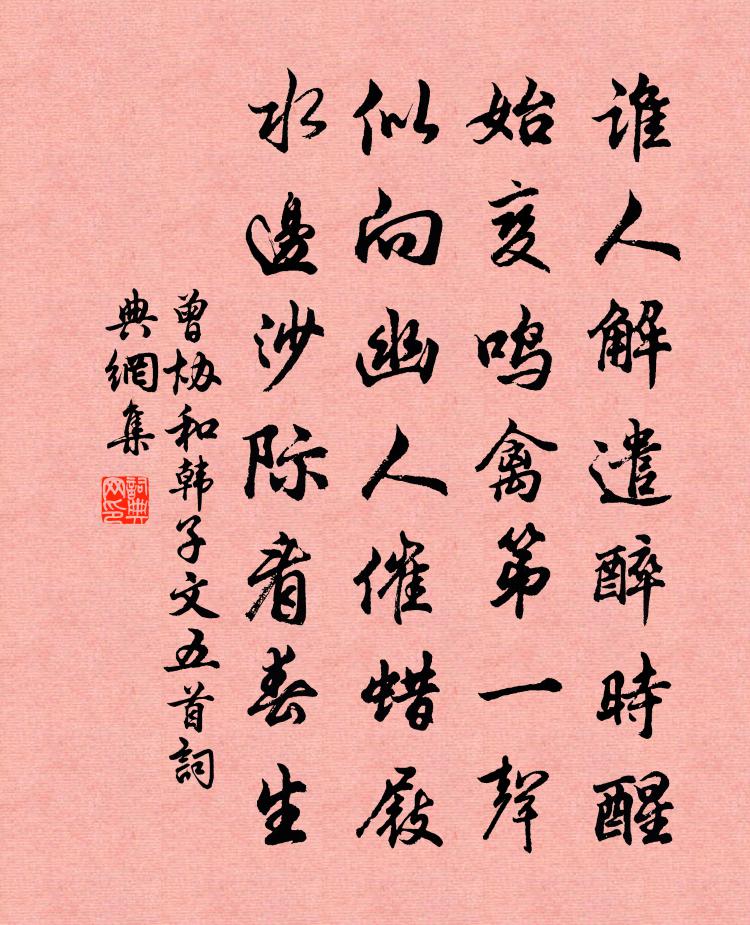 谁人解遣醉時醒
始变鸣禽第一聲
似向幽人催蜡屐
水邊沙际看春生
曾协和韩子文五首詞
典網集
詞典网印